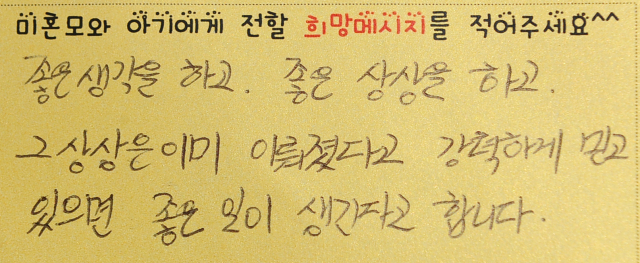 미혼모와 아기에게 전할 희망메시지를 적어주세요^^
좋은생각을 하고. 좋은 상상을 하고.
그 상상은 이미 이뤄졌다고 강력하게 믿고
있으면 좋은 일이 생긴다고 합니다.